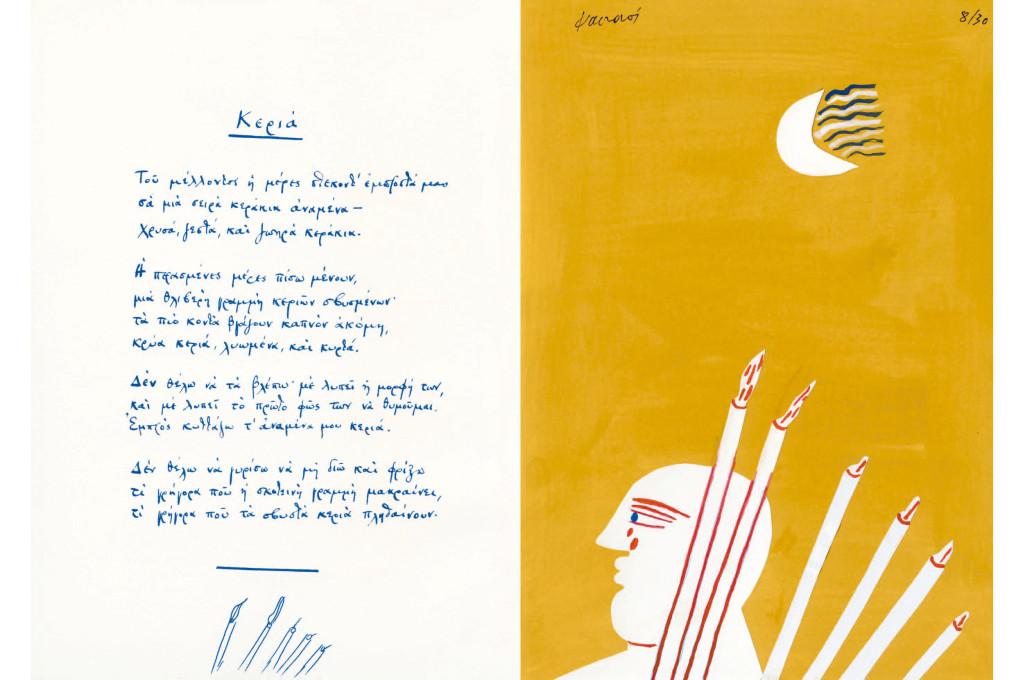 Κεριά
Τοῦ μέλλοντος ἡ μέρες στέκοντ' ἐμπροστά μας
σὰ μιὰ σειρὰ κεράκια ἀναμένα —
χρυσά, ζεστά, καὶ ζωηρὰ κεράκια.
Ἡ περασμένες μέρες πίσω μένουν,
μιὰ θλιβερὴ γραμμὴ κεριῶν σβυσμένων·
τὰ πιὸ κοντὰ βγάζουν καπνὸν ἀκόμη,
κρύα κεριά, λυωμένα, καὶ κυρτά.
Δὲν θέλω νὰ τὰ βλέπω· μὲ λυπεῖ ἡ μορφή των,
καὶ μὲ λυπεῖ τὸ πρῶτο φῶς των νὰ θυμοῦμαι.
Ἐμπρὸς κυττάζω τ' ἀναμένα μου κεριά.
Δὲν θέλω νὰ γυρίσω νὰ μὴ διῶ καὶ φρίξω
τί γρήγορα ποῦ ἡ σκοτεινὴ γραμμὴ μακραίνει,
τί γρήγορα ποῦ τὰ σβυστὰ κεριὰ πληθαίνουν.
8/30